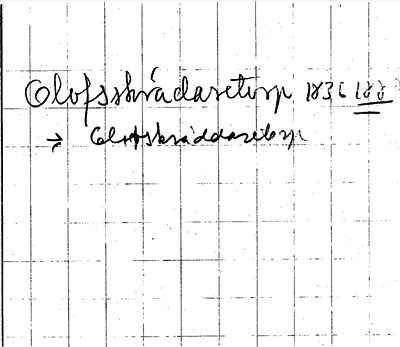 Olofsskrädaretorp 1836 188
→ Olofskräddaretorp